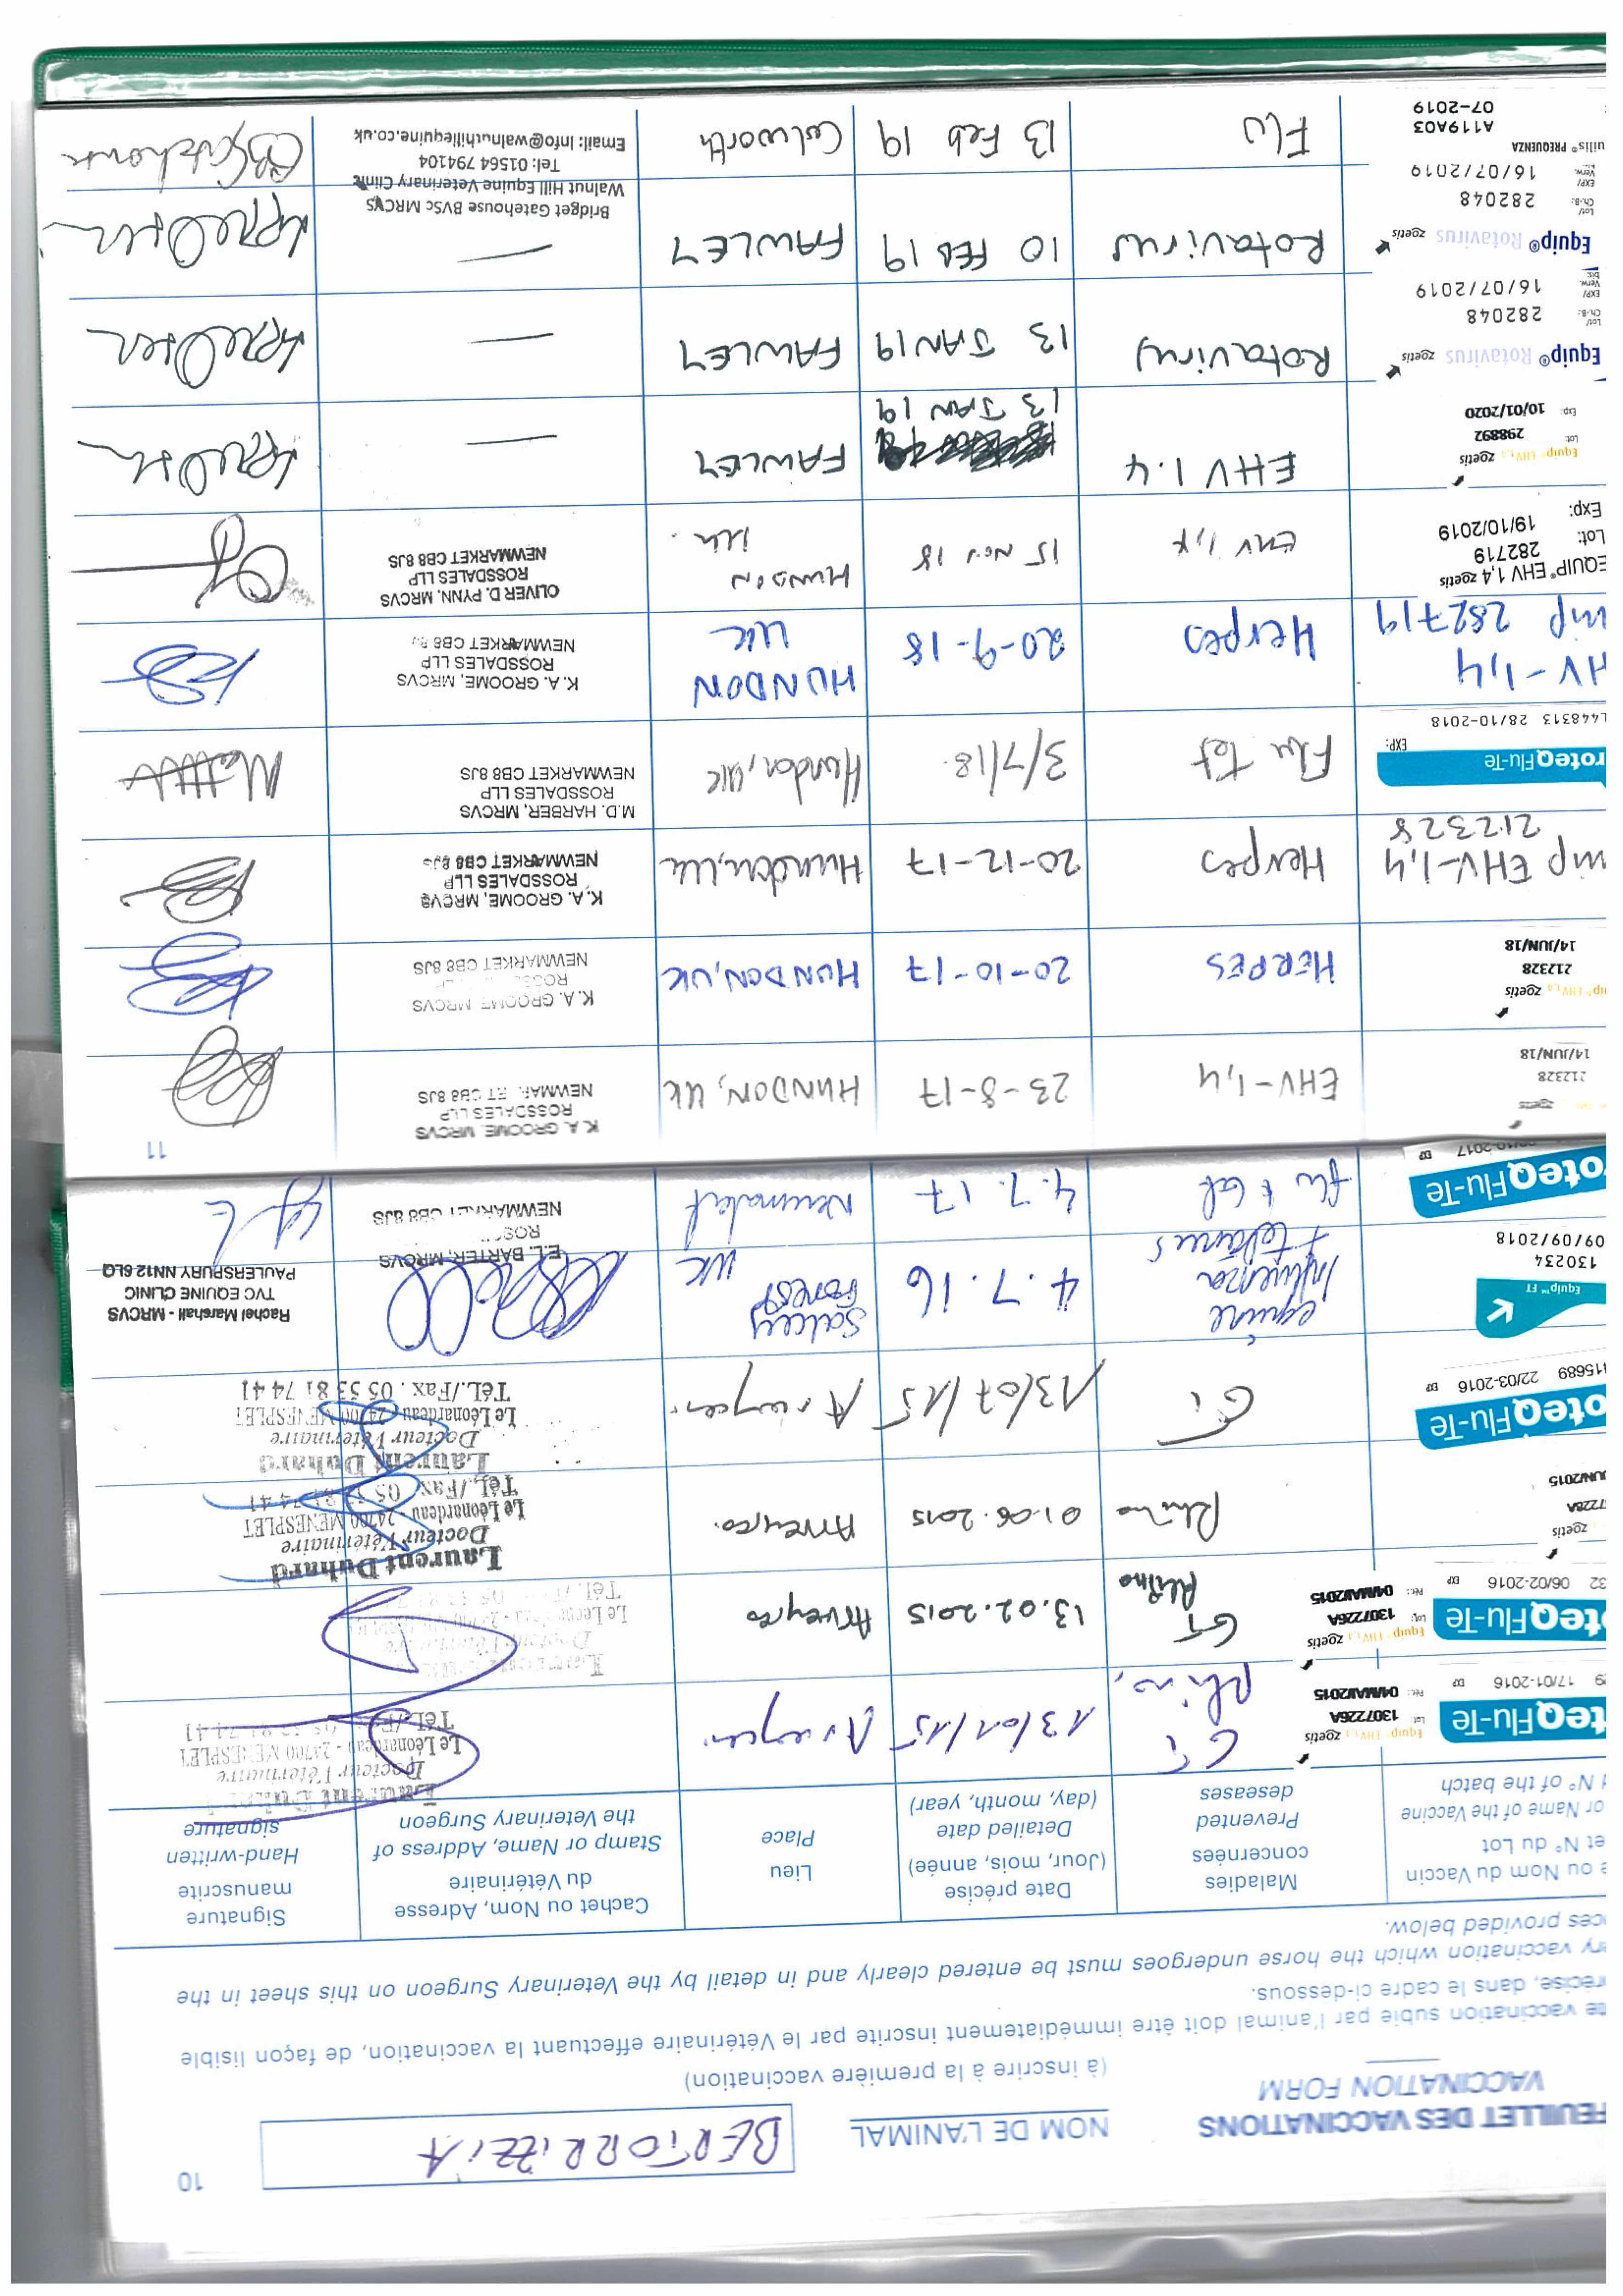 10
FEUILLET DES VACCINATIONS
VACCINATION FORM
NOM DE L'ANIMAL
BERTORRIZZIA
(à inscrire à la première vaccination)
te vaccination subie par l'animal doit être immédiatement inscrite par le Vétérinaire effectuant la vaccination, de façon lisible
récise, dans le cadre ci-dessous.
ry vaccination which the horse undergoes must be entered clearly and in detail by the Veterinary Surgeon on this sheet in the
ces provided below.
e ou Nom du Vaccin
et N° du Lot
or Name of the Vaccine
d N° of the batch
Maladies
concernées
Prevented
deseases
Date précise
(Jour, mois, année)
Detailed date
(day, month, year)
Lieu
Place
Cachet ou Nom, Adresse
du Vétérinaire
Stamp or Name, Address of
the Veterinary Surgeon
Signature
manuscrite
Hand-written
signature
teqFlu-Te
9 17/01-2016 EXP
Equip® EHV 1,4 zoetis
Lot: 1307226A
Pér.: 04/MAI/2015
GT
Rhino,
13/01/15
Docteur Vétérinaire
Le Léonardeau - 24700 MENESPLET
oteqFlu-Te
32 06/02-2016 EXP
Equip® EHV 1,4 zoetis
Lot: 1307226A
Pér.: 04/MAI/2015
GT
Rhino
13.02.2015
Arveyres
zoetis
7228A
JUN/2015
Rhino
01.06.2015
Arveyres.
Laurent Duhard
Docteur Vétérinaire
Le Léonardeau - 24700 MENESPLET
Tél./Fax. 05 53 81 74 41
oteqFlu-Te
415689 22/03-2016 EXP
GT
13/07/15
Laurent Duhard
Docteur Vétérinaire
Le Léonardeau - 24700 MENESPLET
Tél./Fax. 05 53 81 74 41
Equip™ FT
130234
09/09/2018
equine
Influenza
+ tetanus
4.7.16
Salcey
Forest
UK
Rachel Marshall - MRCVS
TVC EQUINE CLINIC
PAULERSPURY NN12 6LQ
oteqFlu-Te
2017 EXP
flu + tet
4.7.17
Newmarket
E.L. BARTER, MRCVS
NEWMARKET CB8 8JS
11
zoetis
212328
14/JUN/18
EHV-1,4
23-8-17
HUNDON, UK
K.A. GROOME, MRCVS
ROSSDALES LLP
NEWMARKET CB8 8JS
uip® EHV 1,4 zoetis
212328
14/JUN/18
HERPES
20-10-17
HUNDON, UK
K.A. GROOME, MRCVS
NEWMARKET CB8 8JS
uip EHV-1,4
212328
Herpes
20-12-17
Hundon, UK
K. A. GROOME, MRCVS
ROSSDALES LLP
NEWMARKET CB8 8JS
roteqFlu-Te
EXP:
L448313 28/10-2018
Flu Tet
3/7/18.
Hundon, UK
M.D. HARBER, MRCVS
ROSSDALES LLP
NEWMARKET CB8 8JS
HV-1,4
uip 282719
Herpes
20-9-18
HUNDON
UK
K. A. GROOME, MRCVS
ROSSDALES LLP
NEWMARKET CB8 8J
EQUIP® EHV 1,4 zoetis
Lot: 282719
Exp: 19/10/2019
EHV 1,4
15 Nov 18
HUNDON
UK.
OLIVER D. PYNN, MRCVS
ROSSDALES LLP
NEWMARKET CB8 8JS
Equip® EHV 1,4 zoetis
Lot 298892
Exp: 10/01/2020
EHV 1.4
13 JAN 19
FAWLEY
—
Equip® Rotavirus zoetis
Lot/ Ch.-B.: 282048
EXP/ Verw. bis: 16/07/2019
Rotavirus
13 JAN 19
FAWLEY
—
Equip® Rotavirus zoetis
Lot/ Ch.-B.: 282048
EXP/ Verw. 16/07/2019
Rotavirus
10 FEB 19
FAWLEY
—
uilis® PREQUENZA
A119A03
07-2019
Flu
13 Feb 19
Colworth
Bridget Gatehouse BVSc MRCVS
Walnut Hill Equine Veterinary Clinic
Tel: 01564 794104
Email: info@walnuthillequine.co.uk